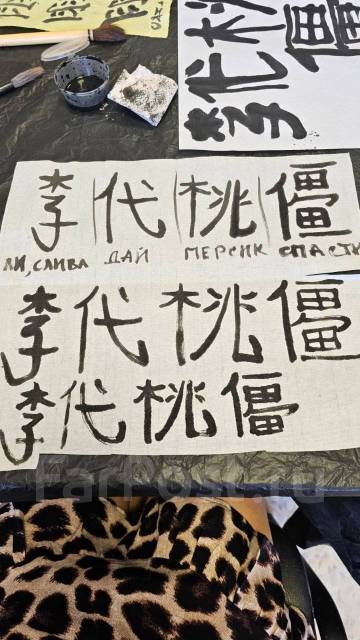 李代桃僵
ЛИ, СЛИВА ДАЙ ПЕРСИК СПАСТИ
李代桃僵
李代桃僵
FarPost.ru